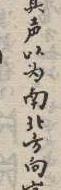 其声以为南北方向